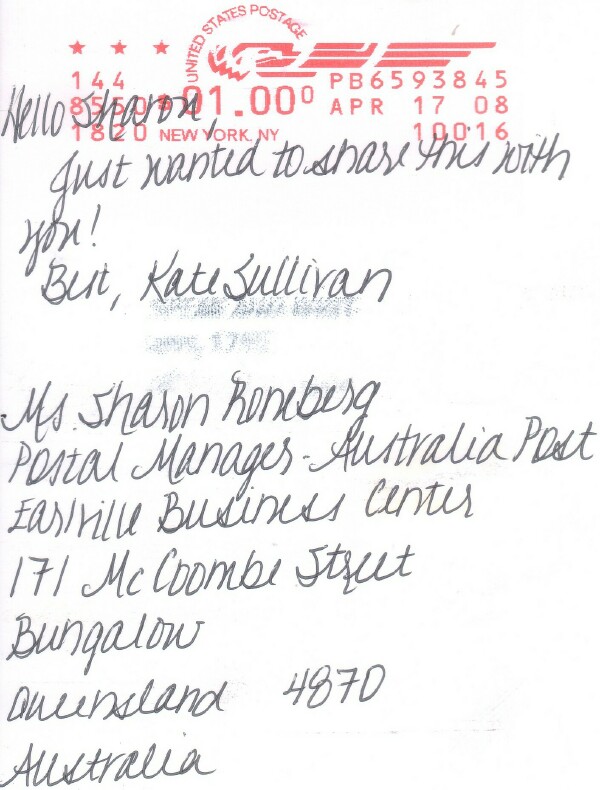 UNITED STATES POSTAGE
144 PB6593845
8550 $01.00⁰ APR 17 08
1820 NEW YORK, NY 10016
Hello Sharon,
Just wanted to share this with
you!
Best, Kate Sullivan
Ms. Sharon Roneberg
Postal Manager - Australia Post
Earlville Business Center
171 McCoombe Street
Bungalow
Queensland 4870
Australia